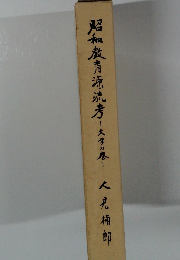 昭和教育源流考
―文学の巻―
人見楠郎